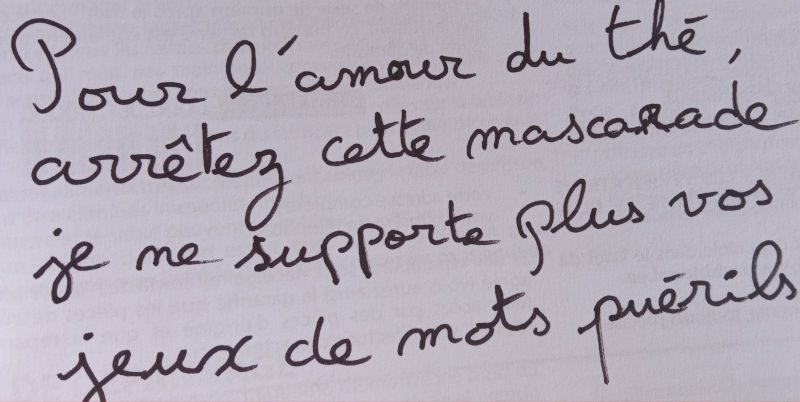 Pour l'amour du thé,
arrêtez cette mascarade
je ne supporte plus vos
jeux de mots puérils